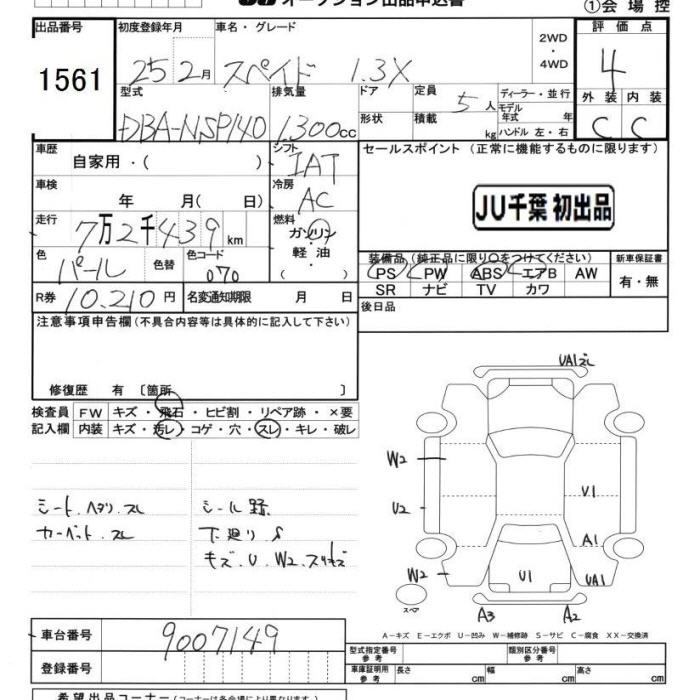 オークション出品申込書
①会場控
出品番号 初度登録年月 車名・グレード 2WD・4WD 評価点
1561 25 2月 スペイド 1.3X 4
型式 排気量 ドア 定員 5人 ディーラー・並行 外装 内装
DBA-NSP140 1,300cc 形状 積載 kg モデル年式 年 ハンドル 左・右 C C
車歴 自家用・( ) シフト IAT セールスポイント (正常に機能するものに限ります)
車検 年 月( 日) 冷房 AC
JU千葉 初出品
走行 7万2千439km 燃料 ガソリン・軽油・( )
色 パール 色替 色コード 070
装備品 (純正品に限り○をつけてください) 新車保証書
PS PW ABS エアB AW 有・無
SR ナビ TV カワ
R券 10,210円 名変通知期限 月 日 後日品
注意事項申告欄(不具合内容等は具体的に記入して下さい)
修復歴 有 〔箇所 〕
検査員 FW キズ・飛石・ヒビ割・リペア跡・×要
記入欄 内装 キズ・汚レ・コゲ・穴・スレ・キレ・破レ
シート.ヘタリ.スレ
カーペット.スレ
シール跡
下廻り.S
キズ.U.W2.スリキズ
UA1
W2
U2 U1
A1
W2 U1 UA1
スペア
A3 A2
A−キズ E−エクボ U−凹み W−補修跡 S−サビ C−腐食 XX−交換済
車台番号 9007149
型式指定番号 参考 類別区分番号 参考
登録番号
車庫証明用 参考 長さ cm 幅 cm 高さ cm
希望出品コーナー(コーナーは各会場により異なります)